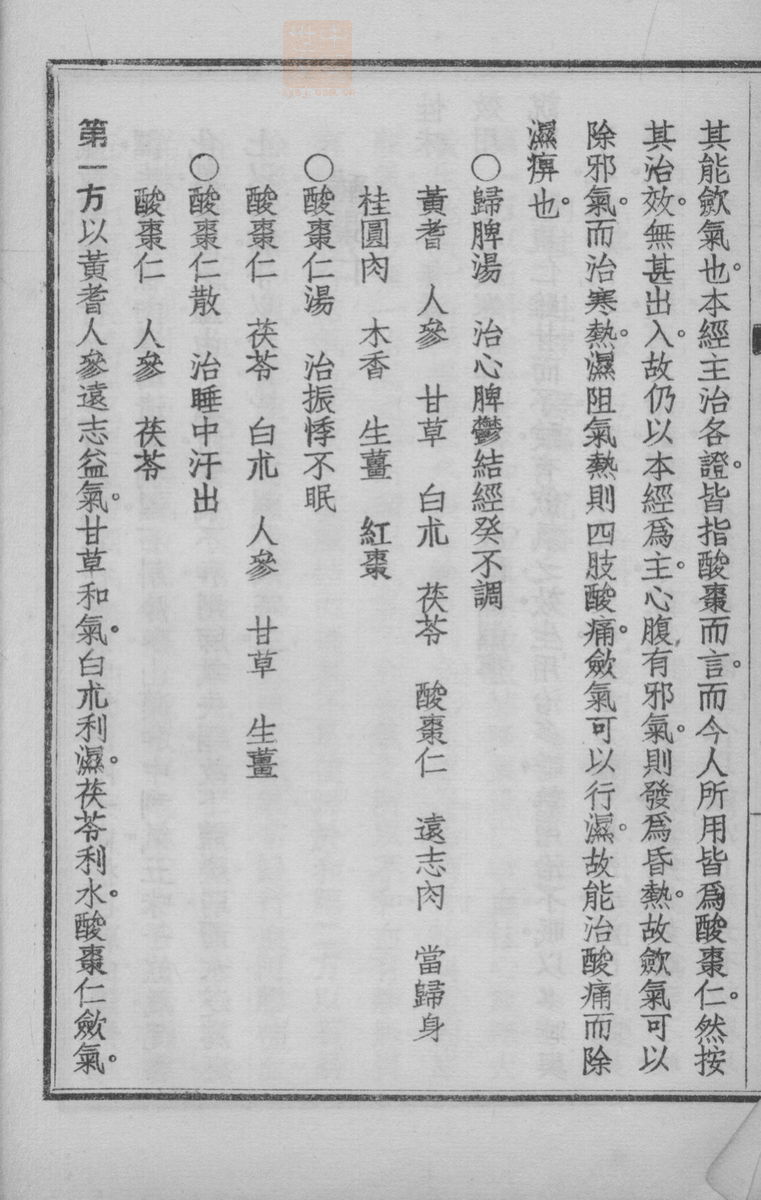 其能斂氣也。本經主治各證。皆指酸棗而言。而今人所用皆爲酸棗仁。然按
其治效。無甚出入。故仍以本經爲主。心腹有邪氣。則發爲昏熱。故斂氣可以
除邪氣。而治寒熱。濕阻氣熱則四肢酸痛。斂氣可以行濕。故能治酸痛而除
濕痹也。
〇歸脾湯　治心脾鬱結經癸不調
黃耆　人參　甘草　白朮　茯苓　酸棗仁　遠志肉　當歸身
桂圓肉　木香　生薑　紅棗
〇酸棗仁湯　治振悸不眠
酸棗仁　茯苓　白朮　人參　甘草　生薑
〇酸棗仁散　治睡中汗出
酸棗仁　人參　茯苓
第一方以黃耆人參遠志益氣。甘草和氣。白朮利濕。茯苓利水。酸棗仁斂氣。